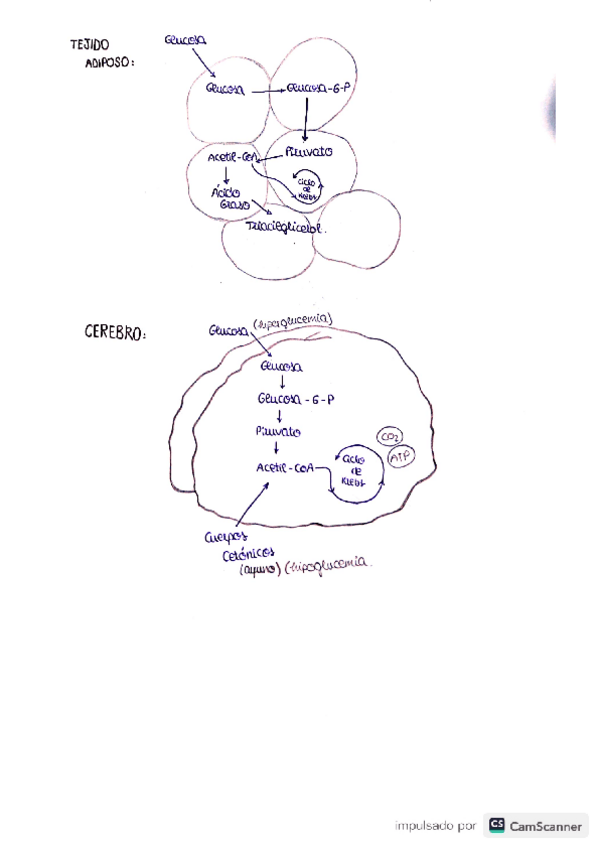 TEJIDO
ADIPOSO:
Glucosa
Glucosa
Glucosa-6-P
Acetil-CoA
Piruvato
Ciclo
de
Krebs
Ácido
Graso
Triacilglicerol.
CEREBRO:
Glucosa (hiperglucemia)
Glucosa
Glucosa-6-P
Piruvato
CO2
ATP
Acetil-CoA
Ciclo
de
Krebs
Cuerpos
Cetónicos
(ayuno) (hipoglucemia.
impulsado por CS CamScanner